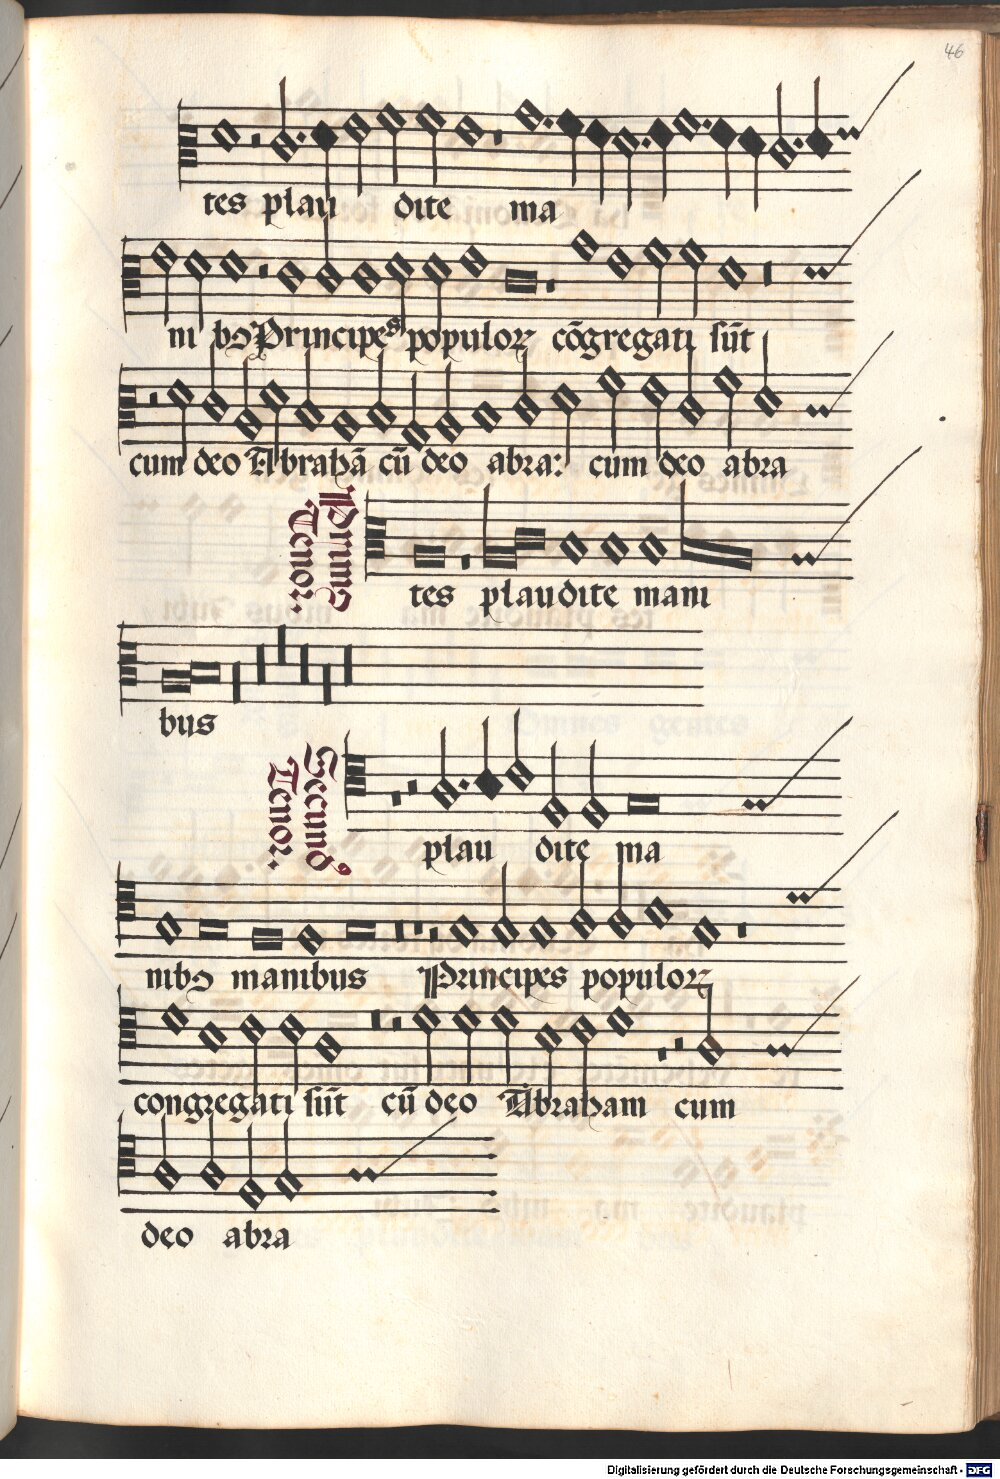 46
tes plau dite ma
ni bꝰ Principes populoꝝ cōgregati sūt
cum deo Abrahā cū deo abra: cum deo abra
Primus
Tenor.
tes plaudite mani
bus
Secundꝰ
Tenor.
plau dite ma
nibꝰ manibus Principes populoꝝ
congregati sūt cū deo Abraham cum
deo abra
Digitalisierung gefördert durch die Deutsche Forschungsgemeinschaft - DFG